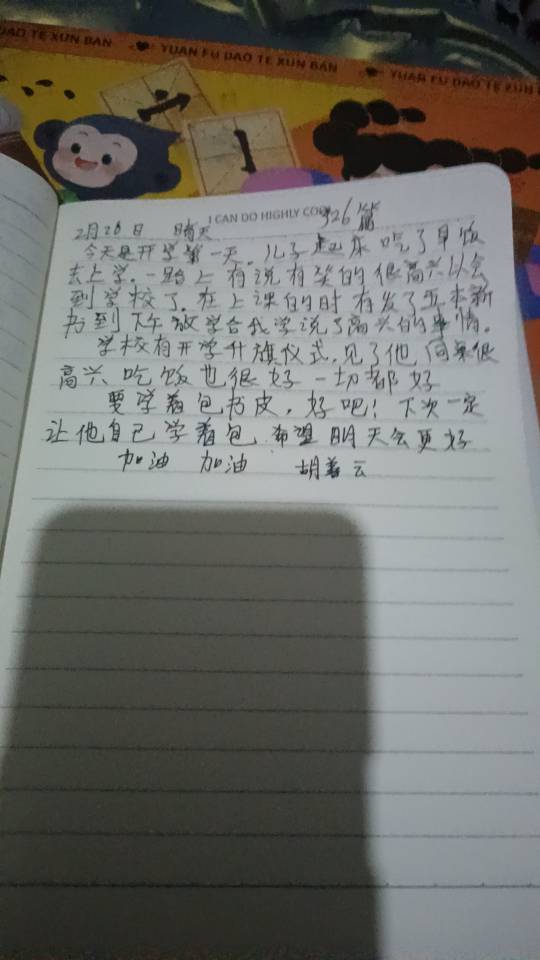 DAO TE XUN BAN
YUAN FU DAO TE XUN BAN
YUAN FU DAO TE XUN BAN
I CAN DO HIGHLY
326篇
2月28日 晴天
今天是开学第一天。儿子起床吃了早饭
去上学。一路上有说有笑的很高兴以会
到学校了。在上课的时有发了五本新
书到下午放学合我学说了高兴的事情。
学校有开学升旗仪式,见了他同桌很
高兴吃饭也很好一切都好
要学着包书皮,好吧!下次一定
让他自己学着包 希望明天会更好
加油 加油 胡 云